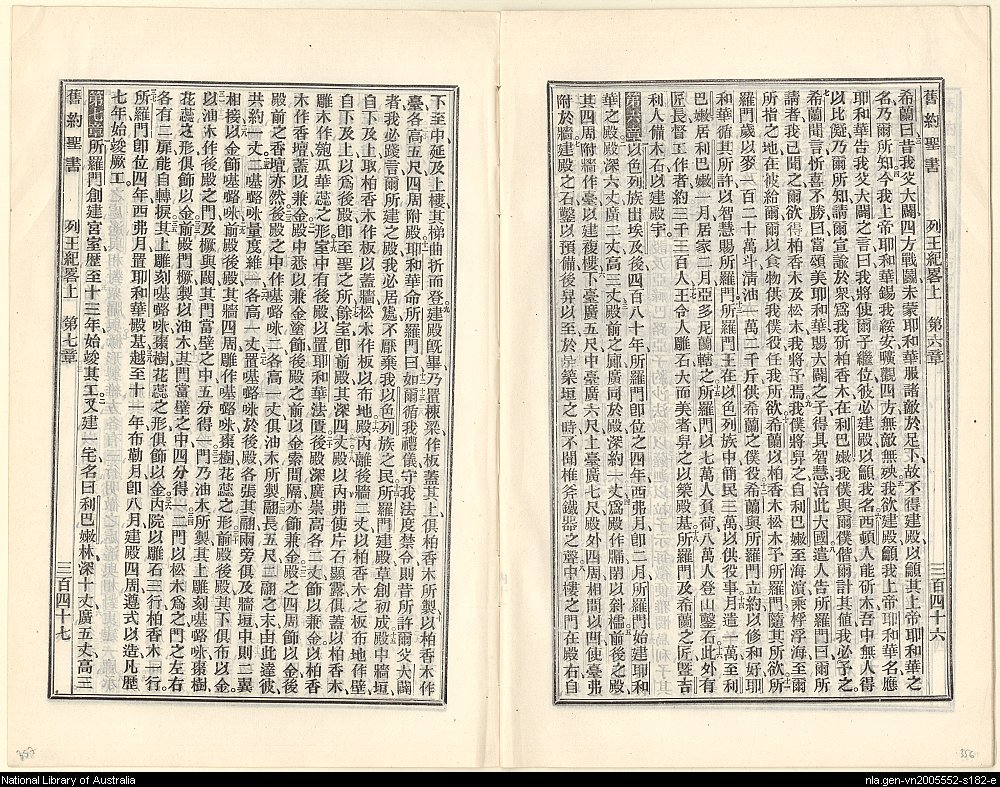 舊約聖書 列王紀畧上 第六章 三百四十六
希蘭曰昔我父大闢四方戰鬬未蒙耶和華服諸敵於足下故不得建殿以籲其上帝耶和華之
名乃爾所知今我上帝耶和華錫我綏安曠觀四方無敵無殃我欲建殿籲我上帝耶和華名應
耶和華告我父大闢之言曰我將使爾子繼位彼必建殿以籲我名西頓人能斫木吾中無人得
以比儗乃爾所知請爾宣諭於衆爲我斫柏香木在利巴嫩我僕與爾僕偕爾計其値我必予之
希蘭聞言忻喜不勝曰當頌美耶和華賜大闢之子得具智慧治此大國遣人告所羅門曰爾所
請者我已聞之爾欲得柏香木及松木我將予焉我僕將舁之自利巴嫩至海濱乘桴浮海至爾
所指之地在彼給爾爾以食物供我僕役任我所欲希蘭以柏香木松木予所羅門隨其所欲所
羅門歲以麥一百二十萬斗淸油一萬二千斤供希蘭之僕役希蘭與所羅門立約以修和好耶
和華循其所許以智慧賜所羅門所羅門王在以色列族中簡民三萬以供役事月遣一萬至利
巴嫩居利巴嫩一月居家二月亞多尼蘭轄之所羅門以七萬人負荷八萬人登山鑿石此外有
匠長督工作者約三千三百人王令人雕石大而美者舁之以築殿基所羅門及希蘭之匠暨吉
利人備木石以建殿宇
第六章 以色列族出埃及後四百八十年所羅門卽位之四年西弗月卽二月所羅門始建耶和
華之殿殿深六丈廣二丈高三丈殿前之廊廣同於殿深約一丈爲殿作牖閉以斜櫺前後之殿
其四周附牆作臺以建複樓下臺廣五尺中臺廣六尺上臺廣七尺殿外四周相間以四使臺弗
附於牆建殿之石鑿以預備後舁以至於是築垣之時不聞椎斧鐵器之聲中樓之門在殿右自
舊約聖書 列王紀畧上 第七章 三百四十七
下至中延及上樓其梯曲折而登建殿旣畢乃置棟梁作板蓋其上俱柏香木所製以柏香木作
臺各高五尺四周附殿耶和華命所羅門曰如爾循我禮儀守我法度禁令則昔所許爾父大闢
者我必踐言爾所建之殿我必居處不厭棄我以色列族之民所羅門建殿草創初成殿中牆垣
自下及上取柏香木作板以蓋牆松木作板以布地殿內離後牆二丈以柏香木之板布地作壁
自下及上以爲後殿卽至聖之所餘室卽前殿其深四丈殿以內弗使片石顯露俱蓋以柏香木
雕木作匏瓜華蕊之形室中有後殿以置耶和華法匱後殿深廣崇高各二丈飾以兼金以柏香
木作香壇蓋以兼金殿中悉以兼金塗飾後殿之前以金索間隔亦飾兼金殿之四周飾以金後
殿前之香壇亦然後殿之中作𠼻㖫咻二各高一丈俱油木所製翮長五尺二翮之末由此達彼
共約一丈二𠼻㖫咻量度維一各高一丈置𠼻㖫咻於後殿各張其翮兩旁俱及牆垣中則二翼
相接以金飾𠼻㖫咻前殿後殿其牆四周雕作𠼻㖫咻棗樹花蕊之形前殿後殿其下俱布以金
以油木作後殿之門及橛與闑其門當壁之中五分得一門乃油木所製其上雕刻𠼻㖫咻棗樹
花蕊之形俱飾以金前殿門橛製以油木其門當壁之中四分得一二門以松木爲之門之左右
各有二扉能自轉捩其上雕刻𠼻㖫咻棗樹花蕊之形俱飾以金內院以雕石三行柏香木一行
所羅門卽位四年西弗月置耶和華殿基越至十一年布勒月卽八月建殿四周遵式以造凡歷
七年始竣厥工
第七章 所羅門創建宮室歷至十三年始竣其工又建一宅名曰利巴嫩林深十丈廣五丈高三
357
356
National Library of Australia
nla.gen-vn2005552-s182-e